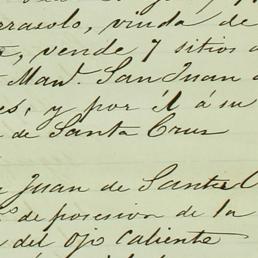 rrasolo, viuda de
, vende 7 sitios a
Man.l San Juan
es, y por él á su
de Santa Cruz
Juan de Santa C
de posesion de la
del Ojo Caliente